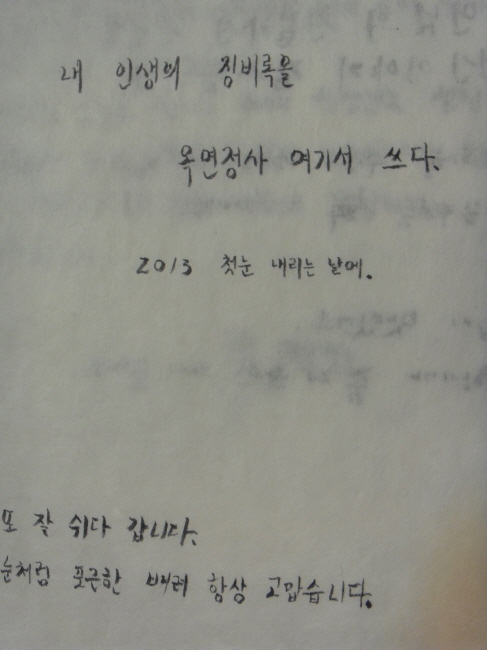 내 인생의 징비록을
옥연정사 여기서 쓰다.
2013 첫눈 내리는 날에.
또 잘 쉬다 갑니다.
눈처럼 포근한 배려 항상 고맙습니다.